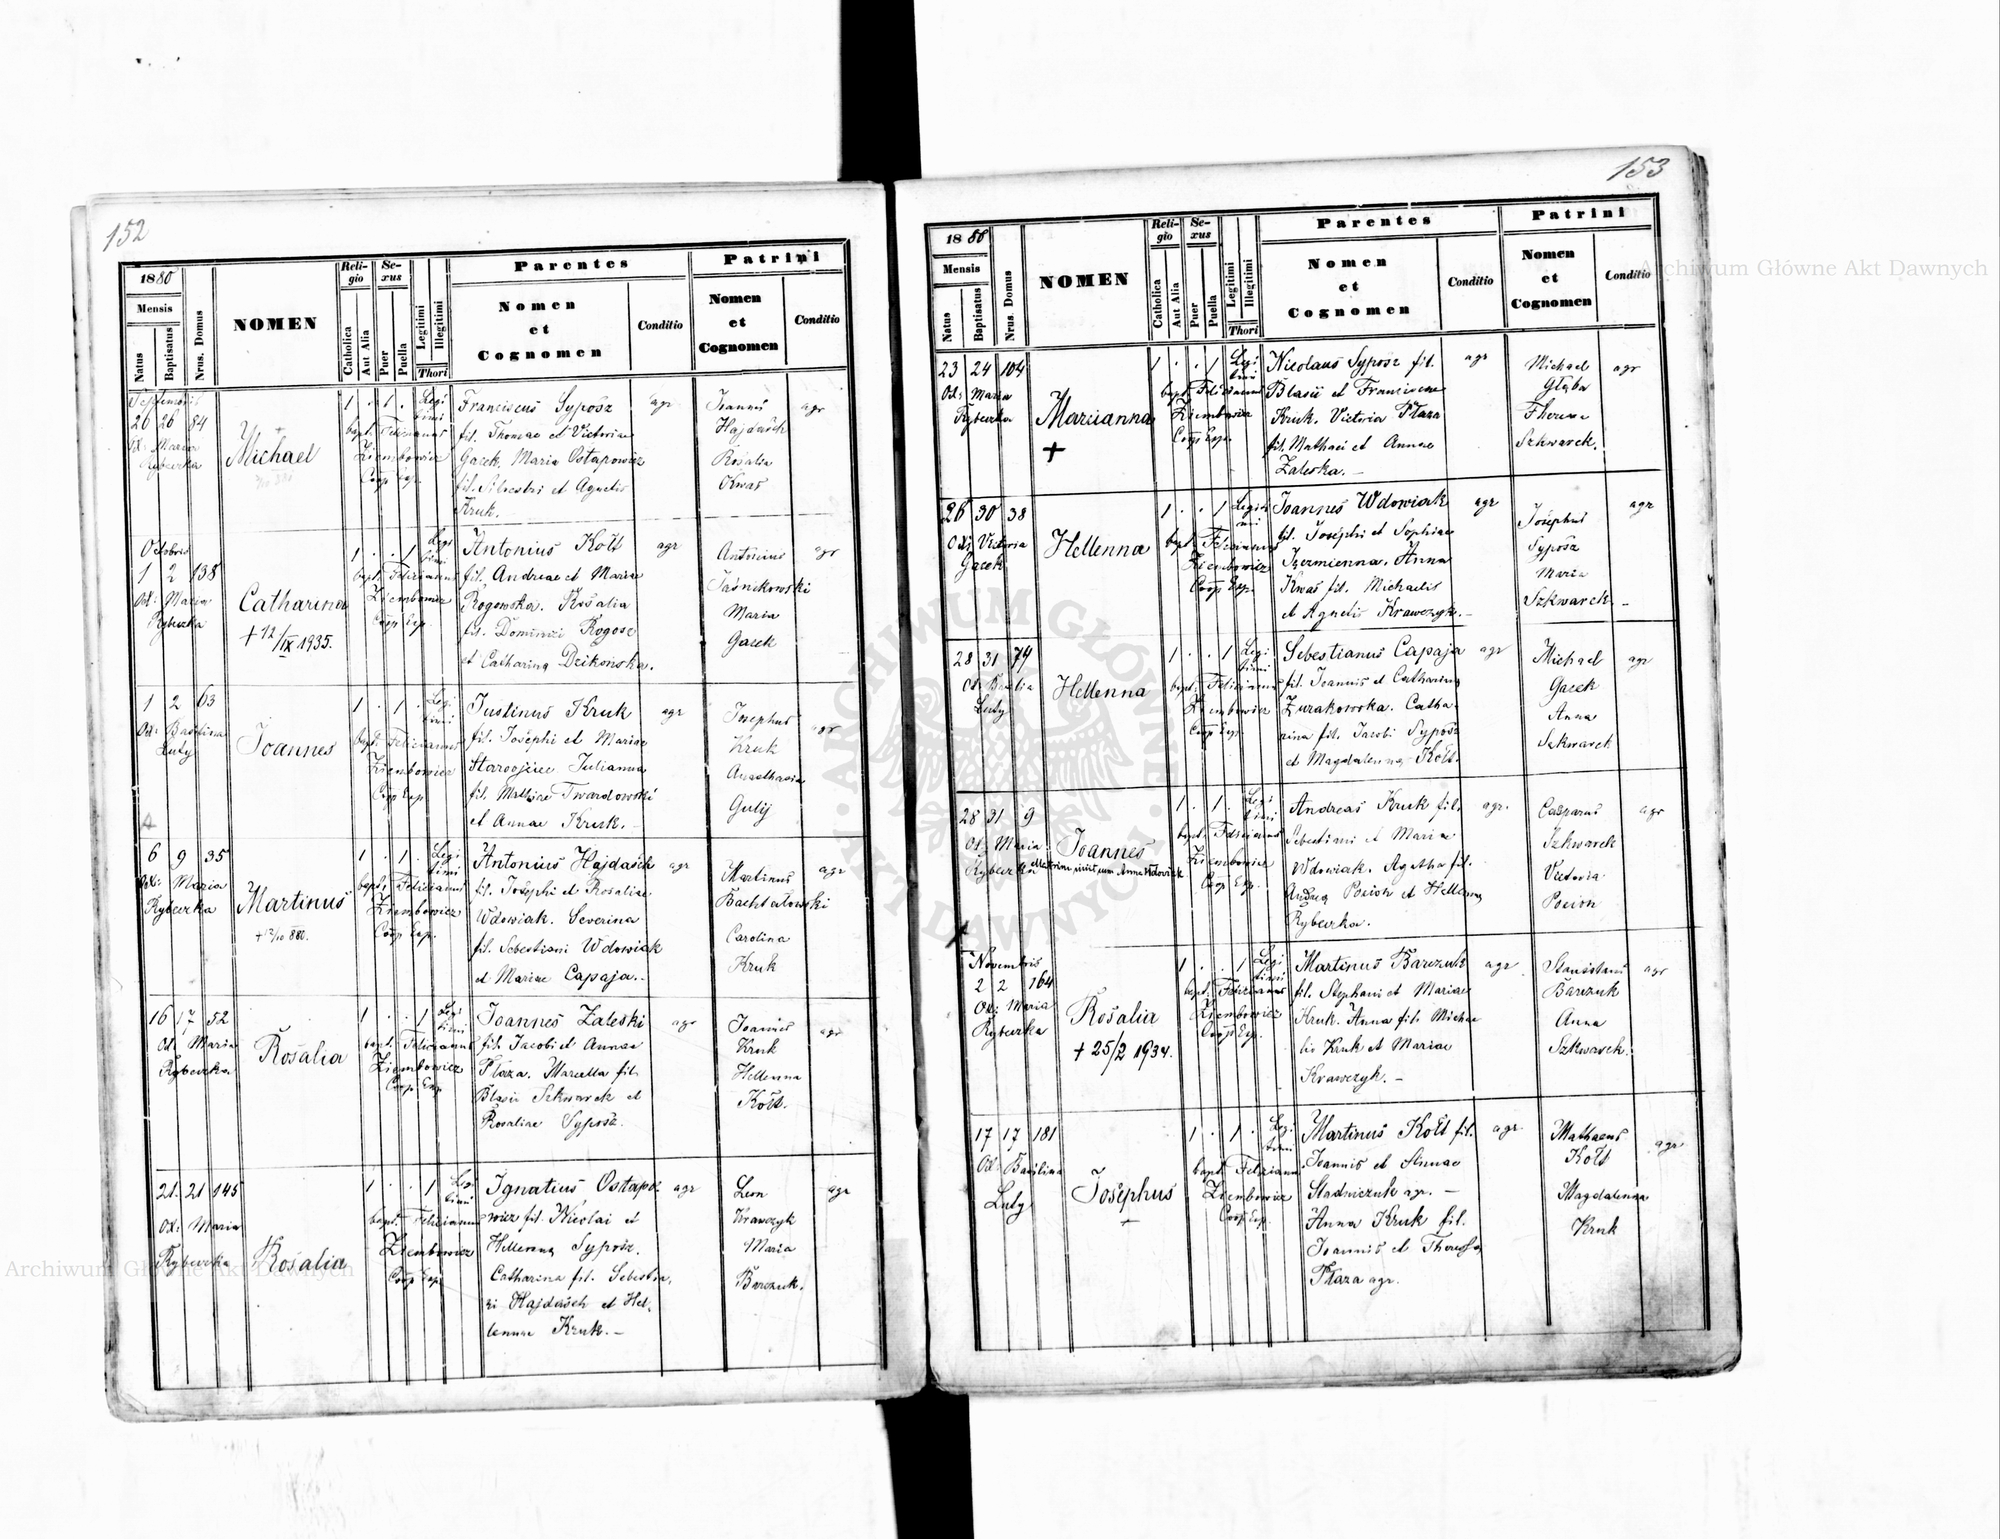 152
1880
Mensis
Natus
Baptisatus
Nrus. Domus
NOMEN
Reli-
gio
Catholica
Aut Alia
Se-
xus
Puer
Puella
Legitimi
Illegitimi
Thori
Parentes
Nomen
et
Cognomen
Conditio
Patrini
Nomen
et
Cognomen
Conditio
Septembris
26 26 84
Maria
Rybeczka
Michael
1 . 1 . Legi
timi
bapt. Felicianus
Ziembowicz
Coop Exp.
Franciscus Syposz
fil. Thomae et Victoriae
Gacek. Maria Ostapowicz
fil. Silvestri et Agnetis
Kruk.
agr
Joannes
Hajdasch
Rosalia
Kwas
agr
Octobris
1 2 138
Obst: Maria
Rybeczka
Catharina
+ 12/IX 1935.
1 . . 1 Legi
timi
bapt. Felicianus
Ziembowicz
Coop Exp.
Antonius Kołt
fil. Andreae et Mariae
Rogowska. Rosalia
fil. Dominici Rogosz
et Catharina Dzikonska.
agr
Antonius
Jasnikowski
Maria
Gacek
agr
1 2 63
Obst: Basilina
Luty
Joannes
1 . 1 . Legi
timi
bapt. Felicianus
Ziembowicz
Coop Exp.
Justinus Kruk
fil. Josephi et Mariae
Starojiec Julianna
fil. Mathiae Twardowski
et Annae Kruk.
agr
Josephus
Kruk
Anasthasia
Gulij
agr
6 9 35
Obst: Maria
Rybeczka
Martinus
+ 12/10 880.
1 . 1 . Legi
timi
bapt. Felicianus
Ziembowicz
Coop Exp.
Antonius Hajdasch
fil. Josephi et Rosaliae
Wdowiak. Severina
fil. Sebestiani Wdowiak
et Mariae Capaja.
agr
Martinus
Bachtalowski
Carolina
Kruk
agr
16 17 52
Obst: Maria
Rybeczka
Rosalia
1 . . 1 Legi
timi
bapt. Felicianus
Ziembowicz
Coop Exp.
Joannes Zaleski
fil. Jacobi et Annae
Płaza. Marcella fil.
Blasii Szkwarek et
Rosaliae Syposz.
agr
Joannes
Kruk
Hellenna
Kołt.
agr
21. 21 145
Obst: Maria
Rybeczka
Rosalia
1 . . 1 Legi
timi
bapt. Felicianus
Ziembowicz
Coop Exp.
Ignatius Ostapo
wicz fil. Nicolai et
Hellenna Syposz.
Catharina fil. Sebestia,
ni Hajdasch et Hel,
lennae Kruk. –
agr
Leon
Krawczyk
Maria
Barczuk.
agr
153
1880
Mensis
Natus
Baptisatus
Nrus. Domus
NOMEN
Reli-
gio
Catholica
Aut Alia
Se-
xus
Puer
Puella
Legitimi
Illegitimi
Thori
Parentes
Nomen
et
Cognomen
Conditio
Patrini
Nomen
et
Cognomen
Conditio
23 24 104
Obst: Maria
Rybeczka
Marcianna
+
1 . . 1 Legi
timi
bapt. Felicianus
Ziembowicz
Coop Exp.
Nicolaus Syposz fil.
Blasii et Franciscae
Kruk. Victoria Płaza
fil. Mathaei et Annae
Zaleska. –
agr
Michael
Głąba
Theresa
Szkwarek.
agr
26 30 38
Obst: Victoria
Gacek
Hellenna
1 . . 1 Legiti
mi
bapt. Felicianus
Ziembowicz
Coop Exp.
Joannes Wdowiak
fil. Josephi et Sophiae
Jzezmienna. Anna
Kwas fil. Michaelis
et Agnetis Krawczyk. –
agr
Josephus
Syposz
Maria
Szkwarek –
agr
28 31 74
Luty
Hellenna
1 . . 1 Legi
timi
bapt. Felicianus
Ziembowicz
Coop Exp.
Sebestianus Capaja
fil. Joannis et Catharina
Zurakowska. Catha
rina fil. Jacobi Syposz
et Magdalenna Kołt.
agr
Michael
Gacek
Anna
Szkwarek
agr
28 31 9
Obst: Maria
Rybeczka
Joannes
Matrim. iniit cum Anna Wdowiak
1 . 1 . Legi
timi
bapt. Felicianus
Ziembowicz
Coop Exp.
Andreas Kruk fil.
Sebestiani et Mariae
Wdowiak. Agatha fil.
Andrea Pocion et Hellenna
Rybeczka.
agr.
Casparus
Szkwarek
Victoria
Pocion
agr
Novembris
2 2 164
Obst: Maria
Rybeczka
Rosalia
+ 25/2 1934.
1 . . 1 Legi
timi
bapt. Felicianus
Ziembowicz
Coop Exp.
Martinus Barczuk
fil. Stephani et Mariae
Kruk. Anna fil. Michae
lis Kruk et Mariae
Krawczyk. –
agr
Stanislaus
Barczuk
Anna
Szkwarek.
agr
17 17 181
Obst: Basilina
Luty
Josephus
+
1 . 1 . Legi
timi
bapt. Felicianus
Ziembowicz
Coop Exp.
Martinus Kołt fil.
Joannis et Annae
Stadniczuk agr. –
Anna Kruk fil.
Joannis et Theressa
Płaza agr.
agr
Mathaeus
Kołt
Magdalenna
Kruk
agr
Archiwum Główne Akt Dawnych
Archiwum Główne Akt Dawnych
ARCHIWUM GŁÓWNE AKT DAWNYCH